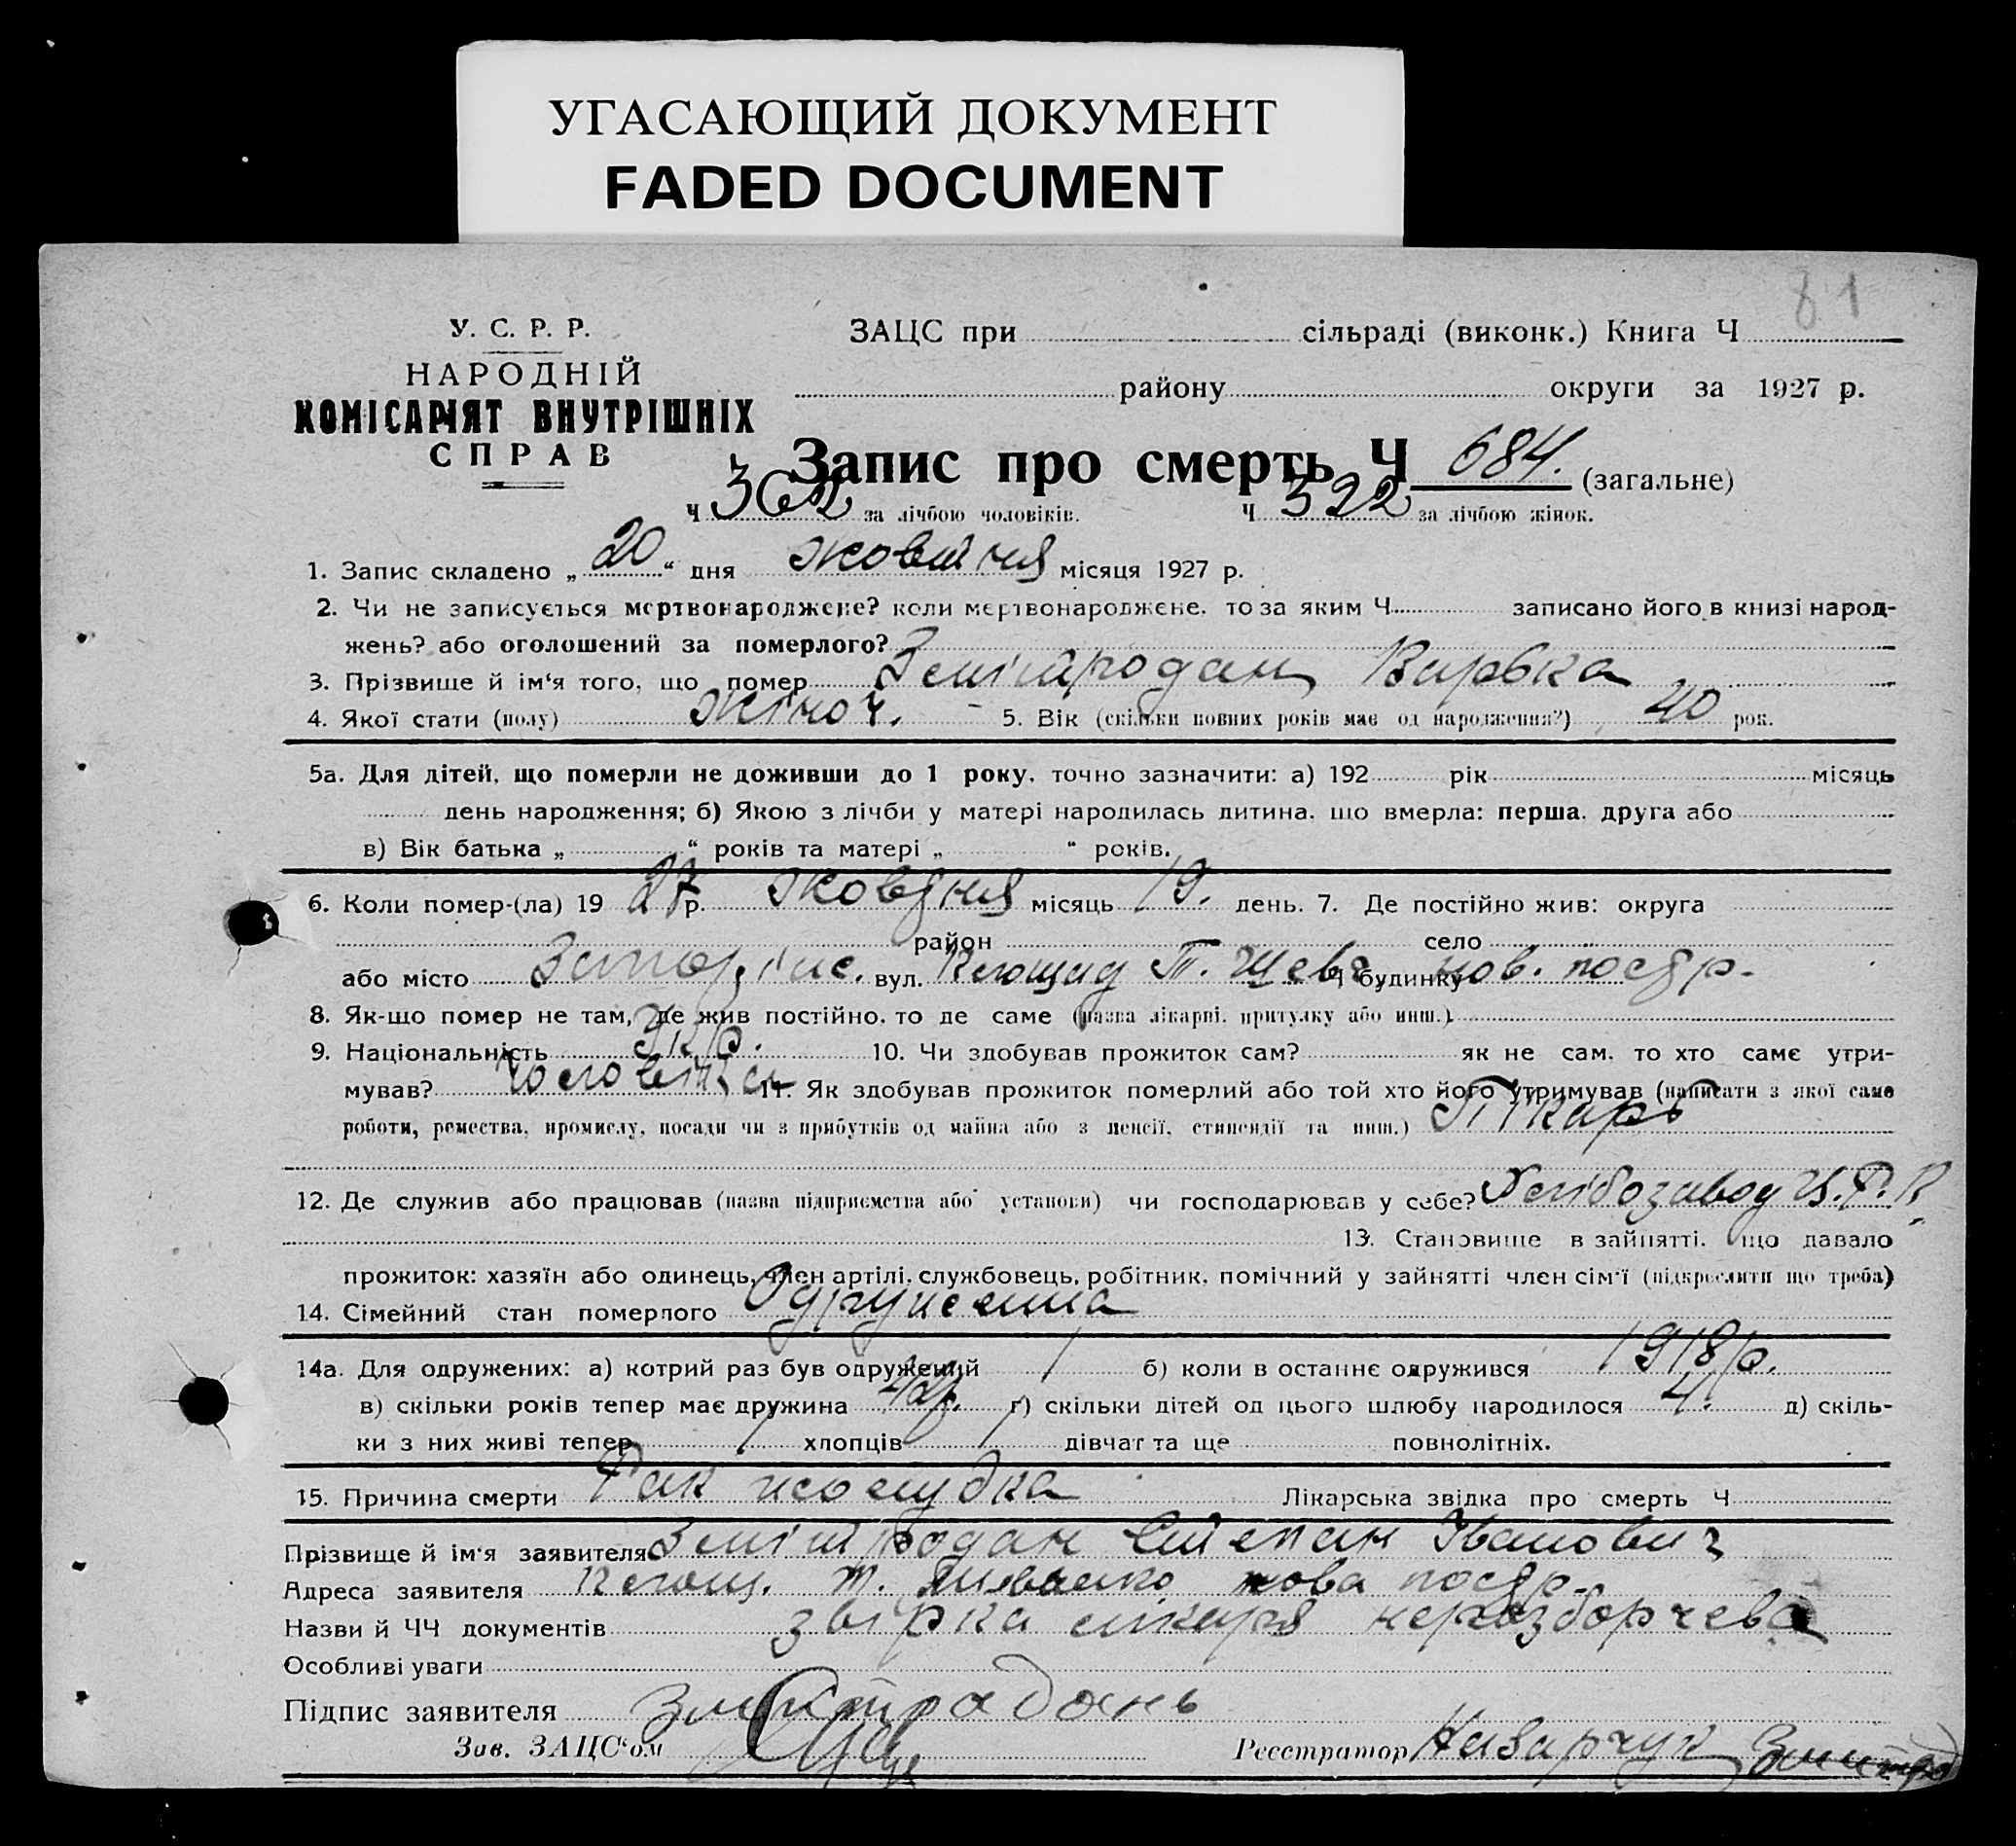 УГАСАЮЩИЙ ДОКУМЕНТ
FADED DOCUMENT
81
У. С. Р. Р.
НАРОДНІЙ
КОМІСАРІЯТ ВНУТРІШНІХ
СПРАВ
ЗАЦС при сільраді (виконк.) Книга Ч
району округи за 1927 р.
Запис про смерть Ч 684. (загальне)
Ч 362 за лічбою чоловіків. Ч 322 за лічбою жінок.
1. Запис складено „20“ дня жовтня місяця 1927 р.
2. Чи не записується мертвонароджене? коли мертвонароджене, то за яким Ч записано його в книзі народ-
жень? або оголошений за померлого?
3. Прізвище й ім'я того, що помер Варвка
4. Якої стати (полу) жіноч. 5. Вік (скільки повних років має од народження?) 40 рок.
5а. Для дітей, що померли не доживши до 1 року, точно зазначити: а) 192 рік місяць
день народження; б) Якою з лічби у матері народилась дитина, що вмерла: перша, друга або
в) Вік батька „ “ років та матері „ “ років.
6. Коли помер-(ла) 19 27 р. жовтня місяць 19. день. 7. Де постійно жив: округа
район село
або місто вул. Площад Т. Шевч Ч будинку нов. постр.
8. Як-що помер не там, де жив постійно, то де саме (назва лікарні, притулку або инш.)
9. Національність Укр. 10. Чи здобував прожиток сам? як не сам, то хто саме утри-
мував? Чоловік 11. Як здобував прожиток померлий або той хто його утримував (написати з якої саме
роботи, ремества, промислу, посади чи з прибутків од майна або з пенсії, стипендії та инш.) Пікарь
12. Де служив або працював (назва підприємства або установи) чи господарював у себе? Хлібозавод Ц.Р.К.
13. Становище в зайнятті, що давало
прожиток: хазяїн або одинець, член артілі, службовець, робітник, помічний у зайнятті член сім'ї (підкреслити що треба)
14. Сімейний стан померлого Одружена
14а. Для одружених: а) котрий раз був одружений 1 б) коли в останнє одружився 1918 р.
в) скільки років тепер має дружина г) скільки дітей од цього шлюбу народилося 4. д) скіль-
ки з них живі тепер 1 хлопців 1 дівчат та ще повнолітніх.
15. Причина смерти Рак жолудка Лікарська звідка про смерть Ч
Прізвище й ім'я заявителя Змітродан Степан Іванович
Адреса заявителя Площ. Т. нова постр.
Назви й ЧЧ документів лікаря неразборчева
Особливі уваги
Підпис заявителя
Зав. ЗАЦС'ом Реєстратор Назарчук